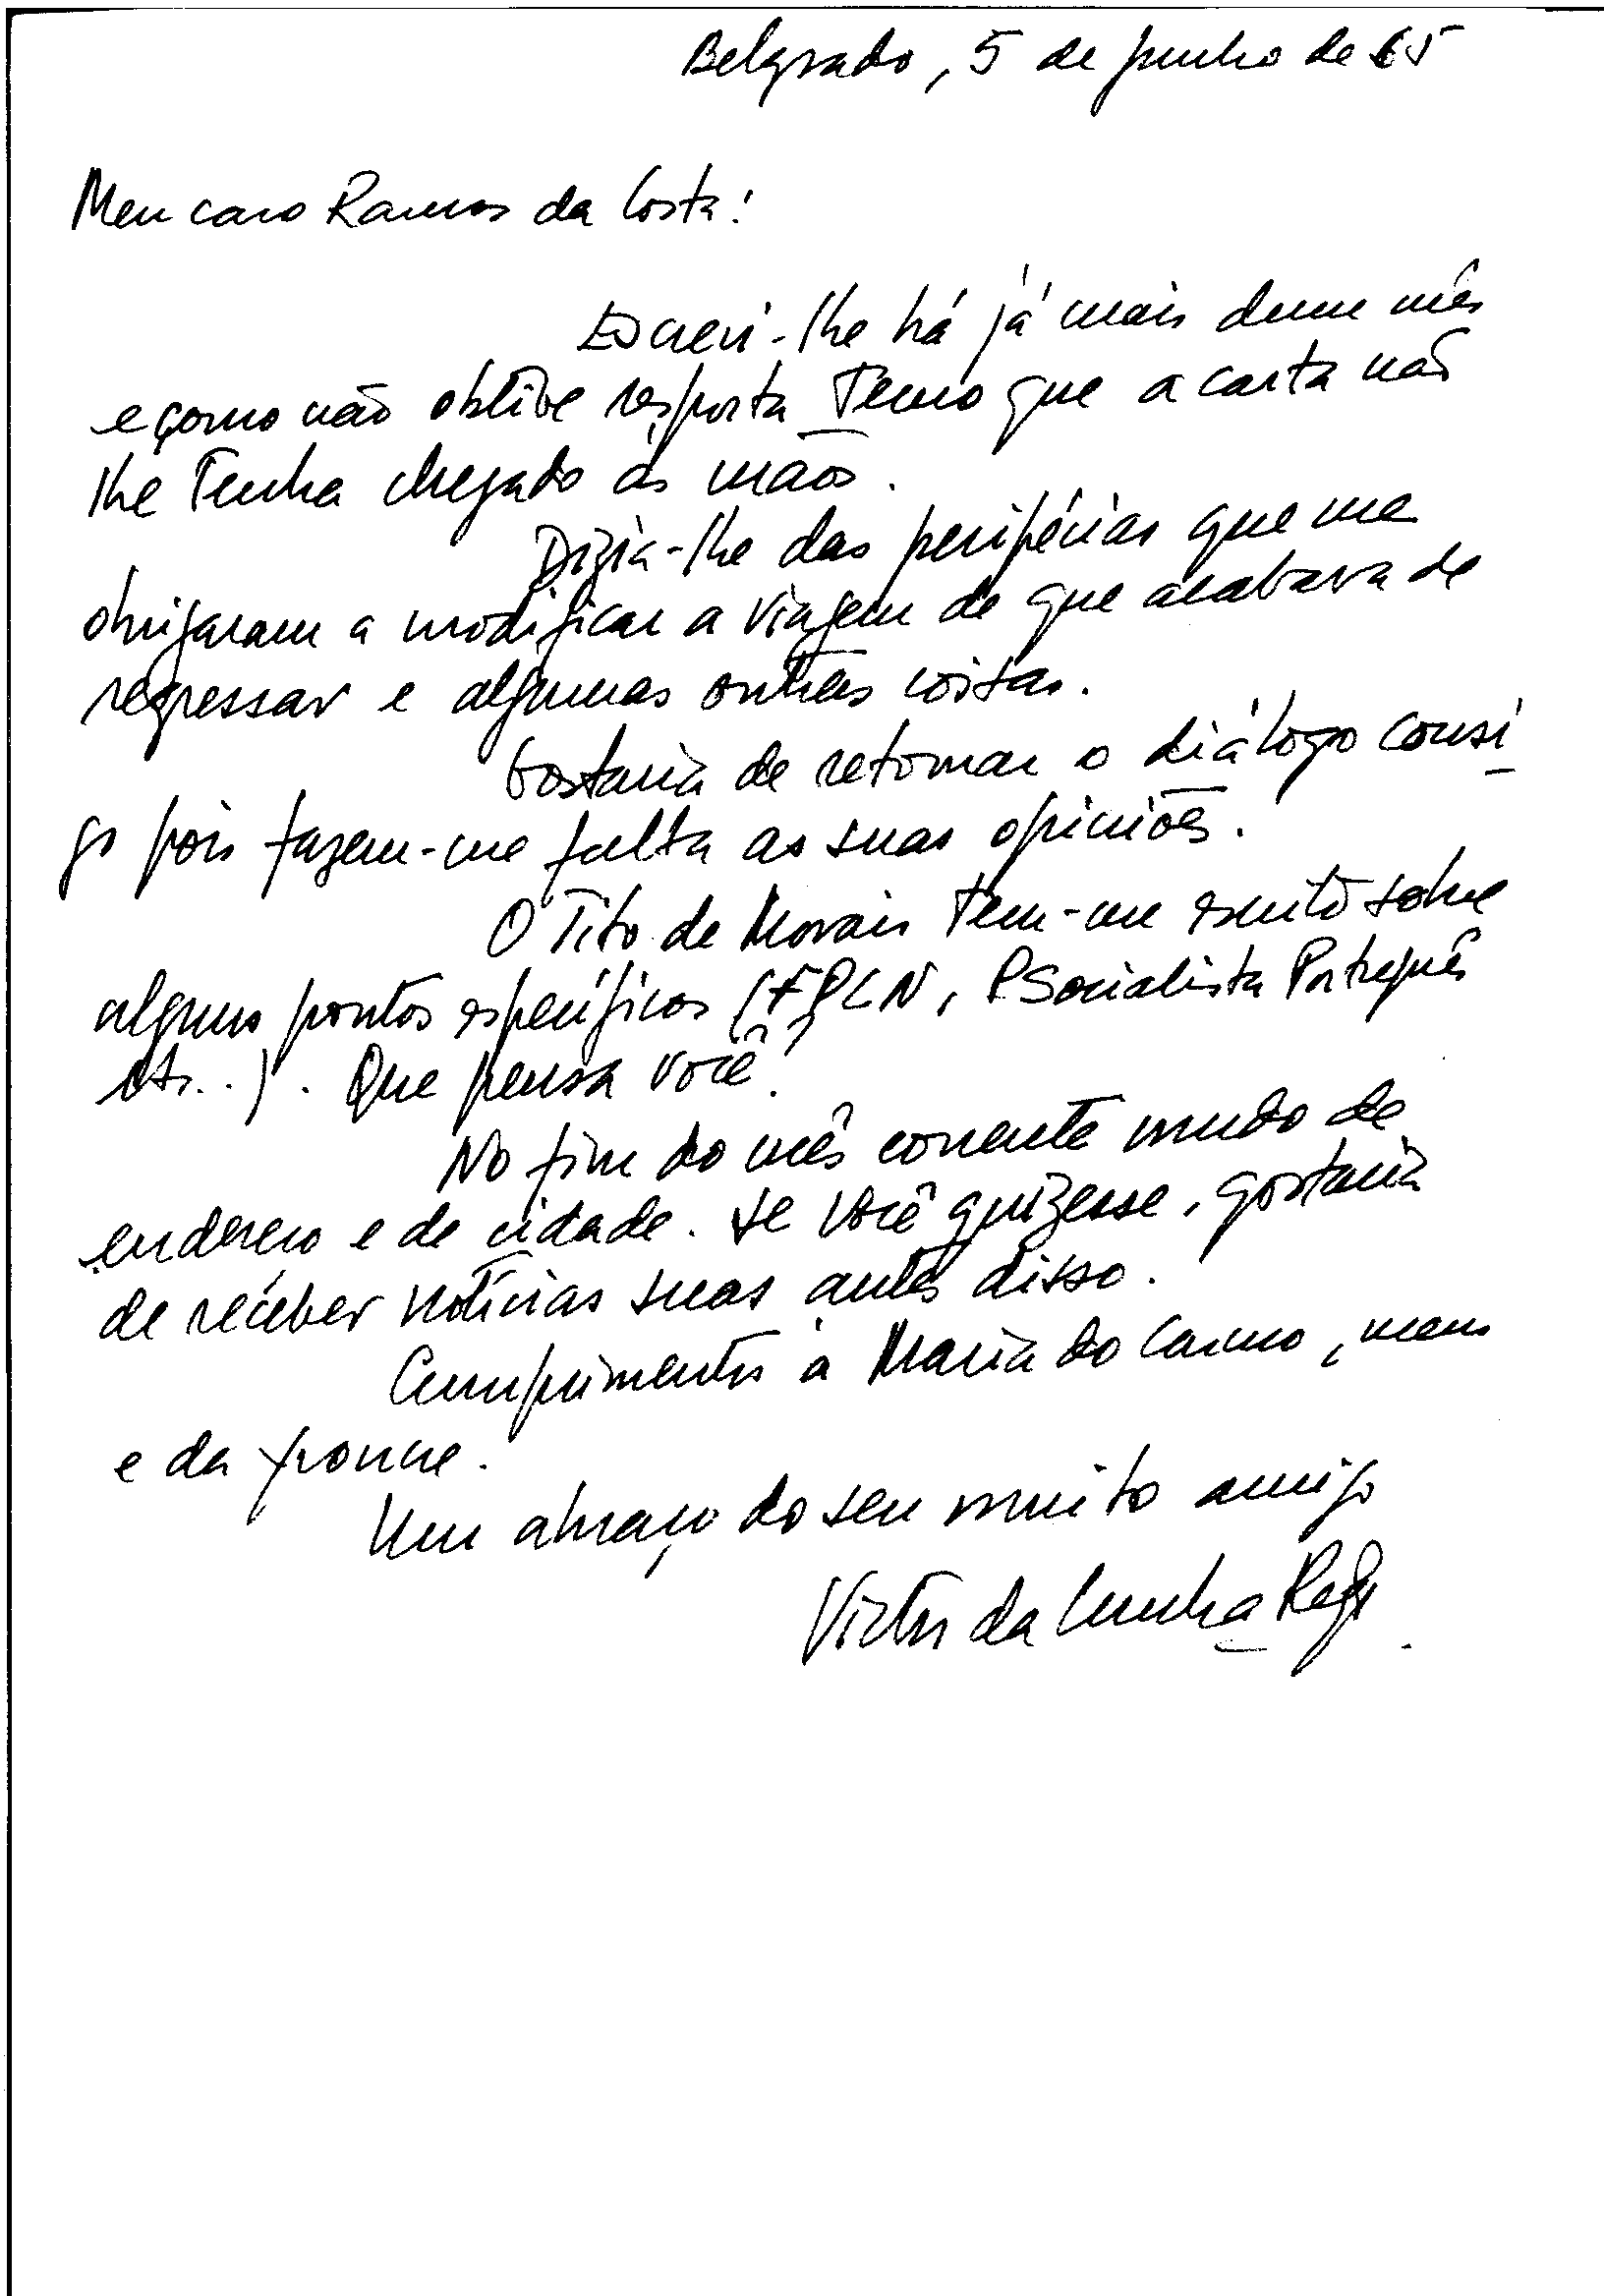 Belgrado, 5 de junho de 65
Meu caro Ramos da Costa:
Escrevi-lhe há já mais dum mês
e como não obtive resposta temo que a carta não
lhe tenha chegado às mãos.
Dizia-lhe das peripécias que me
obrigaram a modificar a viagem de que acabava de
regressar e algumas outras coisas.
Gostaria de retomar o diálogo consi
go pois fazem-me falta as suas opiniões.
O Tito de Morais tem-me escrito sobre
alguns pontos específicos (FPLN, P Socialista Português
etc...). Que pensa você?
No fim do mês corrente mudo de
endereço e de cidade. Se você quizesse, gostaria
de receber notícias suas antes disso.
Cumprimentos à Maria do Carmo, meus
e da Yvonne.
Um abraço do seu muito amigo
Victor da Cunha Rego